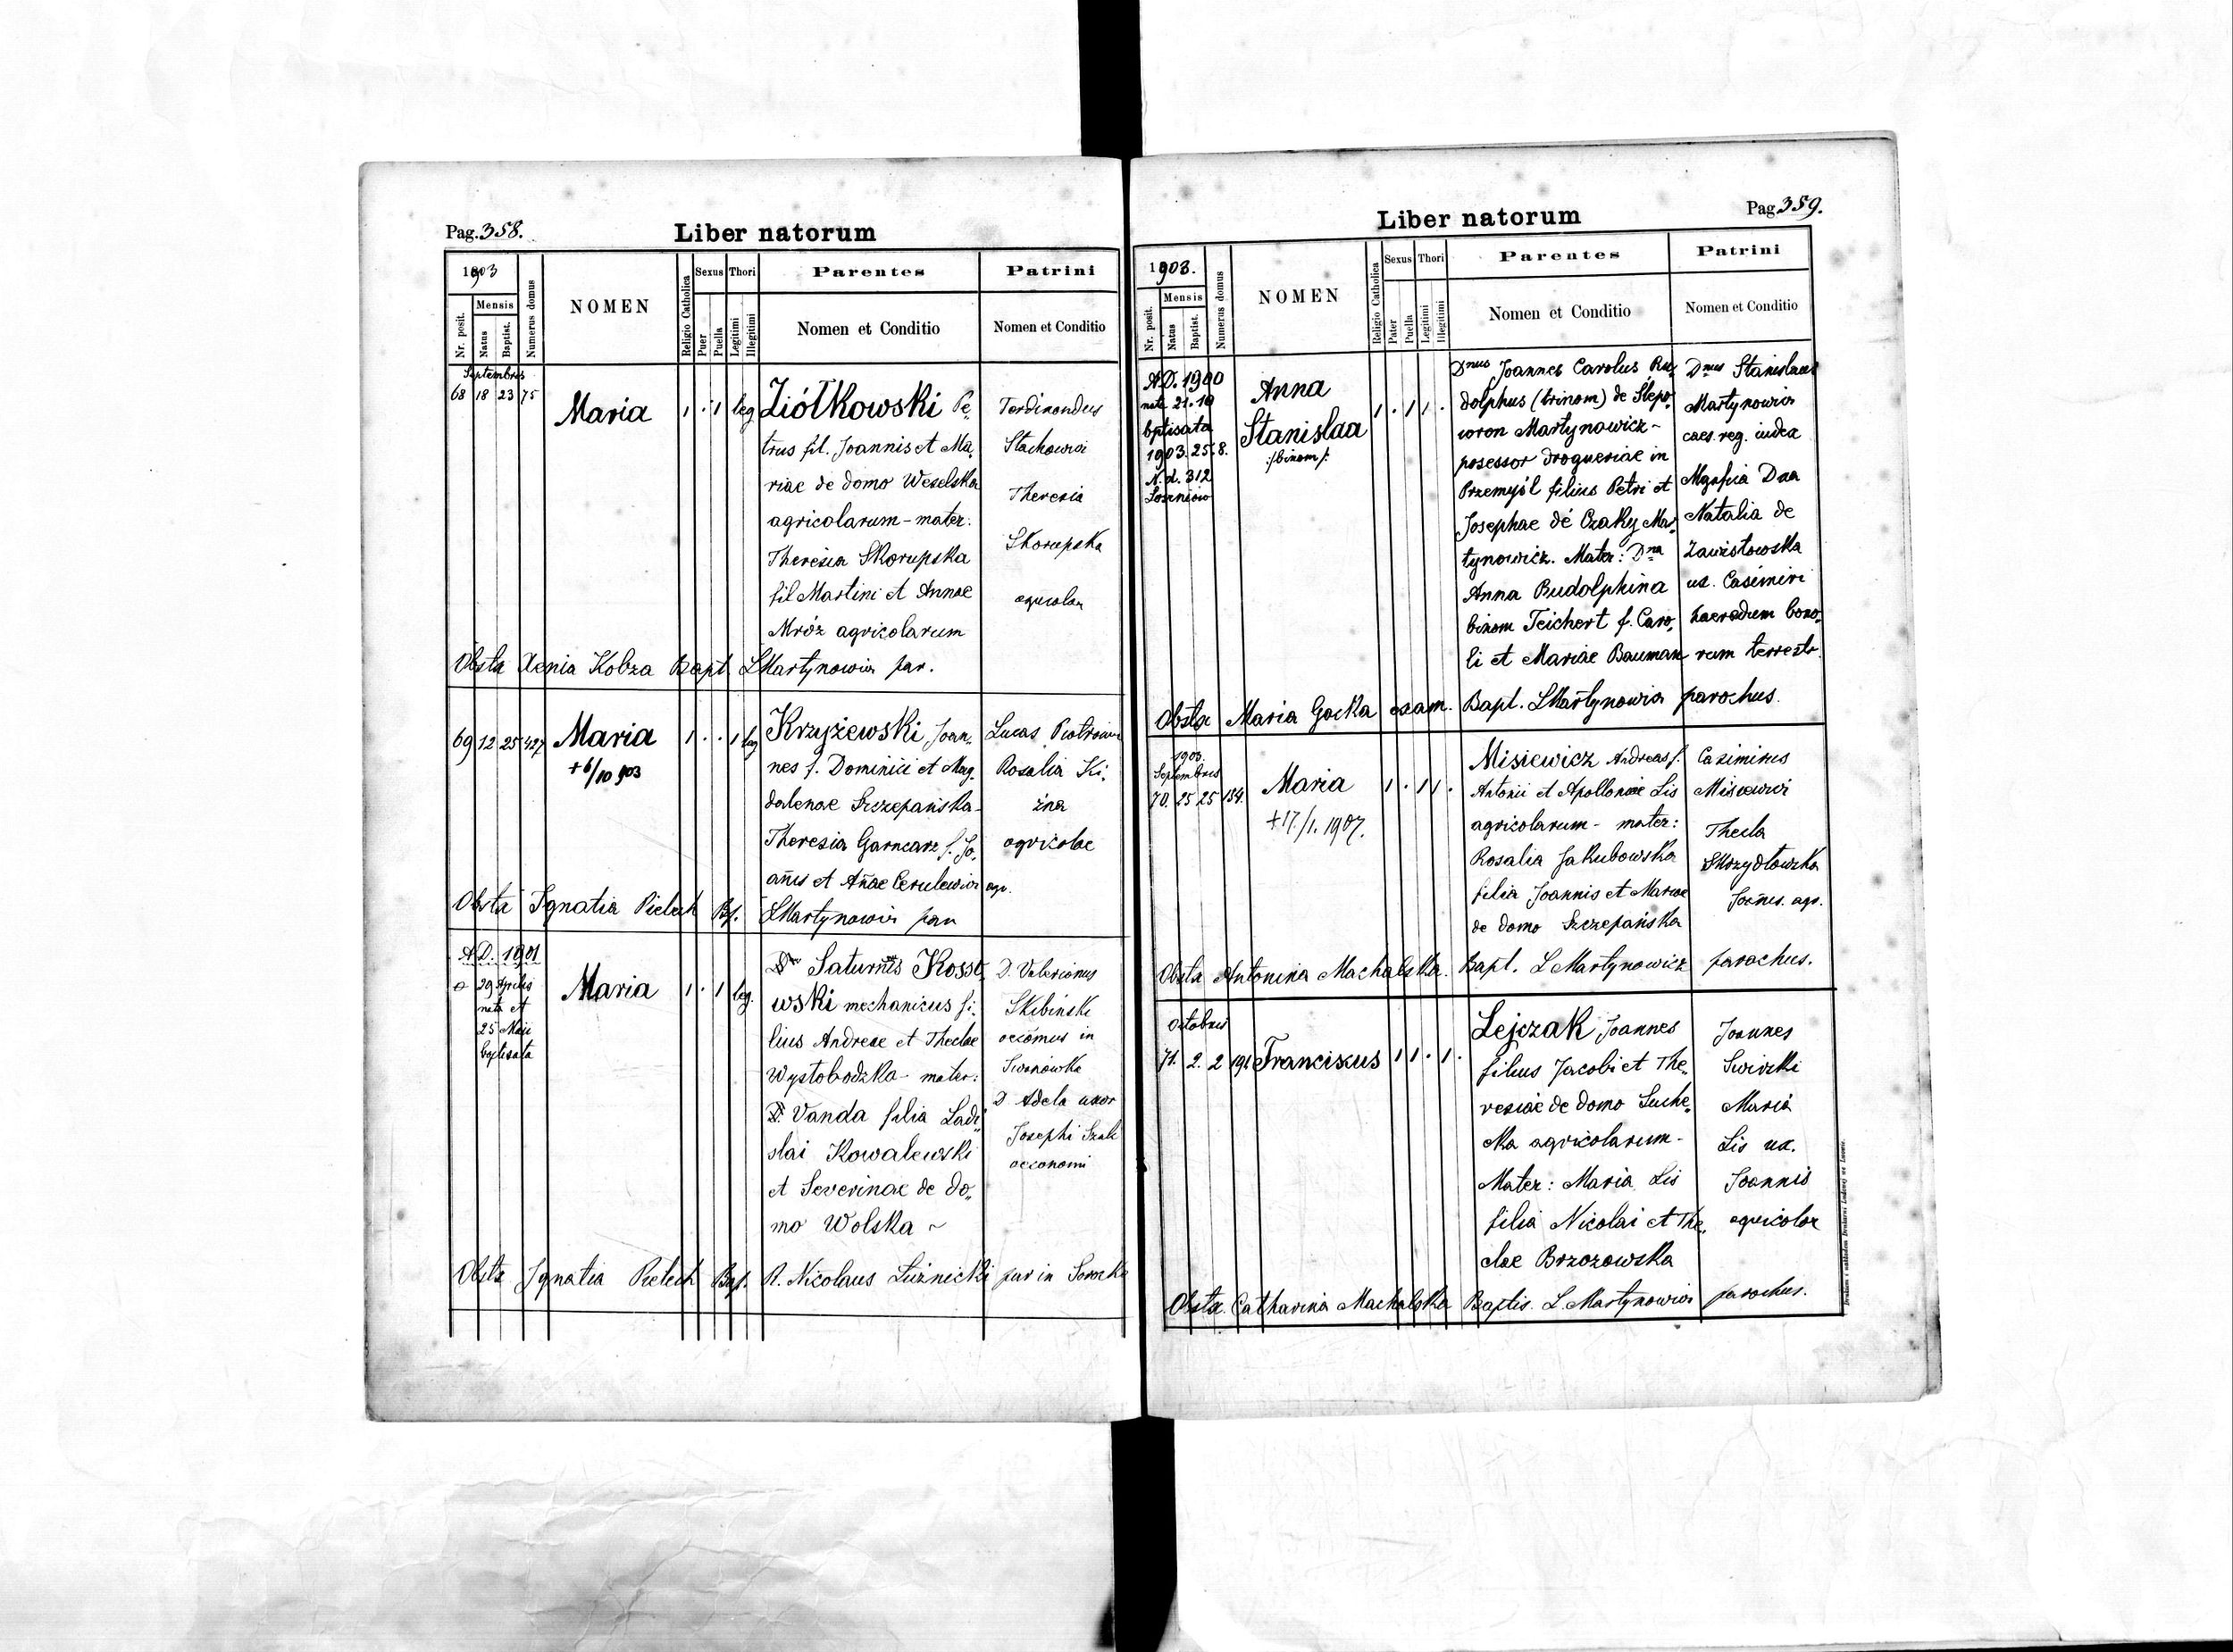 Pag. 358.
Liber natorum
1903
Nr. posit.
Mensis
Natus
Baptist.
Numerus domus
NOMEN
Religio Catholica
Sexus
Puer
Puella
Thori
Legitimi
Illegitimi
Parentes
Nomen et Conditio
Patrini
Nomen et Conditio
Septembris
68 18 23 75
Maria
1 · 1 leg
Ziółkowski Pe„
trus fil. Joannis et Ma„
riae de domo Weselska
agricolarum - mater:
Theresia Skorupska
fil Martini et Annae
Mróz agricolarum
Ferdinandus
Stachowicz
Theresia
Skorupska
agricolae
Obstx Xenia Kobza Bapt. LMartynowicz par.
69 12 25 427
Maria
+ 6/10 903
1 · · 1 leg
Krzyżewski Joan„
nes f. Dominici et Mag.
dalenae Szczepańska -
Theresia Garncarz f. Jo„
añis et Añae Cerulewicz agr.
Lucas Piotrowicz
Rosalia Ki„
źna
agricolae
Obstx Ignatia Pielech Bp. LMartynowicz par
A.D. 1901
29 Aprilis
nata et
25 Maii
baptisata
Maria
1 · 1 leg.
Saturnus Kosso„
wski mechanicus fi„
lius Andreae et Theclae
Wystobodzka - mater:
D. Vanda filia Ladi„
slai Kowalewski
et Severinae de do„
mo Wolska ~
D. Valerianus
Skibinski
oecomus in
Iwanówka
D. Adela uxor
Josephi Szal
oeconomi
Obstx Ignatia Pielech Bap. R. Nicolaus Luźnicki par in
Pag 359.
Liber natorum
1903.
Nr. posit.
Mensis
Natus
Baptist.
Numerus domus
NOMEN
Religio Catholica
Sexus
Pater
Puella
Thori
Legitimi
Illegitimi
Parentes
Nomen et Conditio
Patrini
Nomen et Conditio
A.D. 1900
nata 21.10
bptisata
1903. 25.8.
N. d. 312
Łoszniów
Anna
Stanislaa
:/binom/:
1 · 1 1 ·
Dnus Joannes Carolus Ru„
dolphus (trinom) de Slepo„
woron Martynowicz -
posessor drogueriae in
Przemyśl filius Petri et
Josephae dé Czaky Mar„
tynowicz. Mater: Dna
Anna Rudolphina
binom Teichert f. Caro„
li et Mariae Bauman
Dnus Stanislaus
Martynowicz
caes. reg. iudex
Mgnfica Dna
Natalia de
Zawistowska
ux. Casimiri
haeredum bono„
rum terrestr.
Obstx Maria Gocka exam. Bapt. LMartynowicz parochus.
1903.
Septembris
70. 25 25 134.
Maria
+ 17./1. 1907.
1 · 1 1 ·
Misiewicz Andreas f.
Antonii et Apolloniae Lis
agricolarum - mater:
Rosalia Jakubowska
filia Joannis et Mariae
de domo Szczepańska
Casimirus
Misiewicz
Thecla
Skrzydłowska
Joañis. agr.
Obstx Antonina Machalska. Bapt. L Martynowicz parochus.
Octobris
71. 2. 2 191
Franciscus
1 1 · 1 ·
Lejczak Joannes
filius Jacobi et The„
resiae de domo Suche„
cka agricolarum -
Mater: Maria Lis
filia Nicolai et The„
clae Brzozowska
Joannes
Swirski
Maria
Lis ux.
Joannis
agricolae
Obstx. Catharina Machalska Baptis. L. Martynowicz parochus.